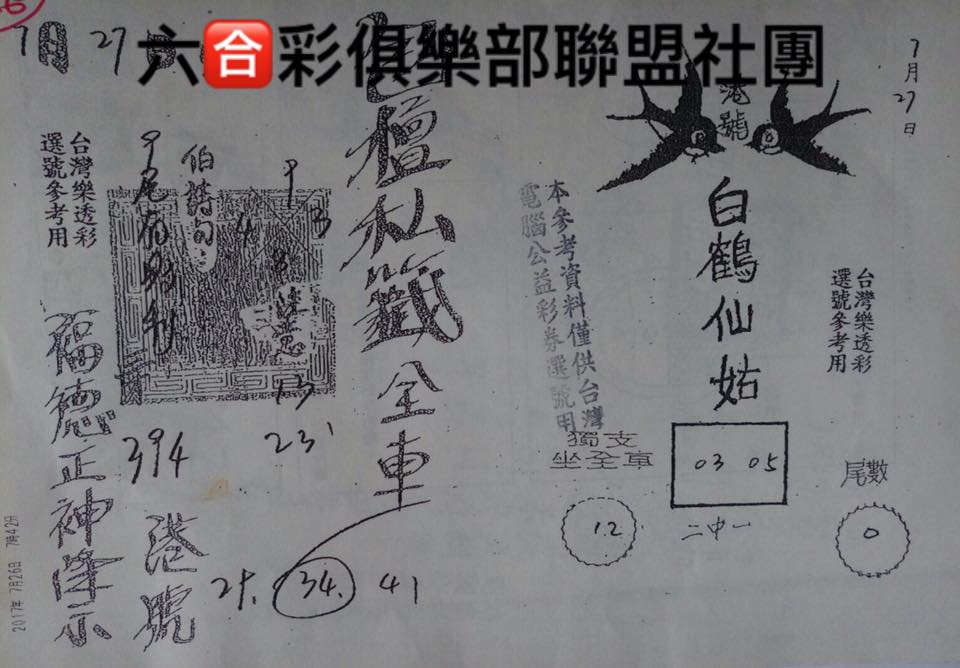 六合彩俱樂部聯盟社團
7月27
7月27日
港號
白鶴仙姑
台灣樂透彩
選號參考用
本參考資料僅供台灣
電腦公益彩券選號用
獨支
坐全車
12
03 05
二中一
尾數
0
壇私籤全車
台灣樂透彩
選號參考用
伯詩句
4 8
13
394
23
福德正神降示
港號
34. 41
2017年 7月26日 7時42分